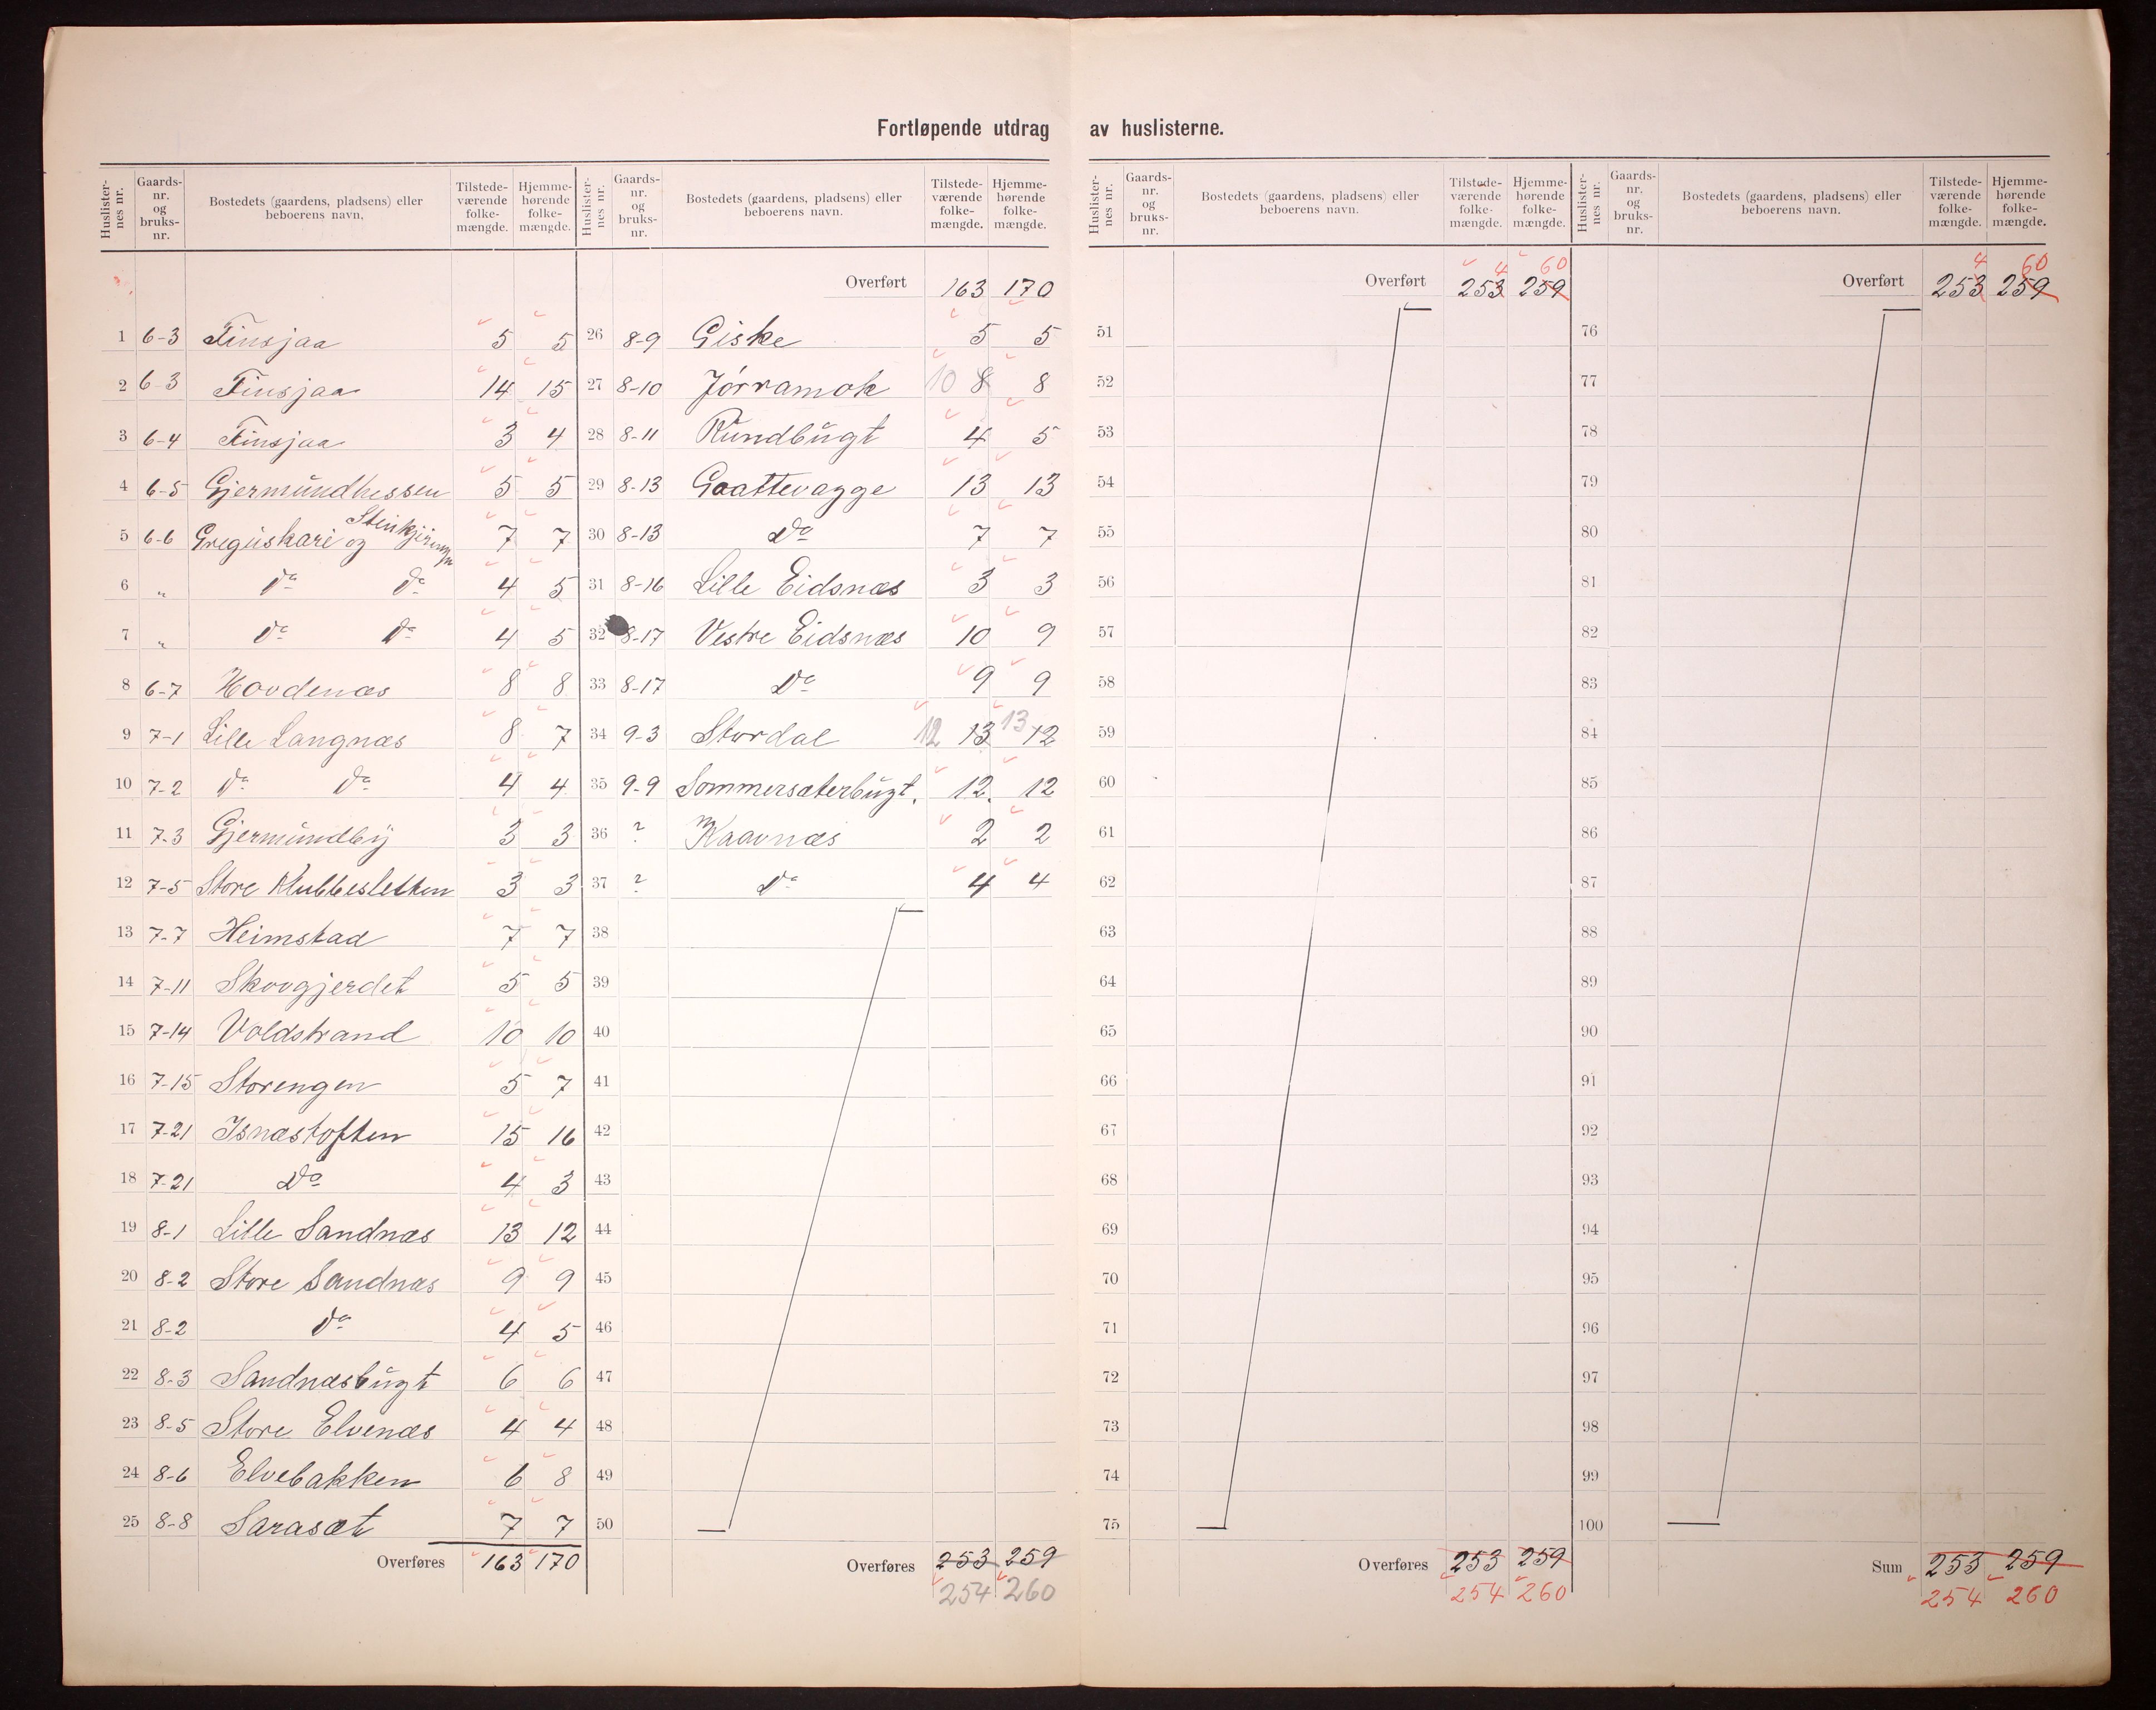 Fortløpende utdrag av huslisterne.
Huslisternes nr. Gaards-nr. og bruks-nr. Bostedets (gaardens, pladsens) eller beboerens navn, Tilstede-værende folke-mængde. Hjemme-hørende folke-mængde.
1 6-3 Finsjaa 5 5
2 6-3 Finsjaa 14 15
3 6-4 Finsjaa 3 4
4 6-5 Gjermundhessen 5 5
5 6-6 Greguskari og Steinkjeringn 7 7
6 " do do 4 5
7 " do do 4 5
8 6-7 Hovdenæs 8 8
9 7-1 Lille Langnæs 8 7
10 7-2 do do 4 4
11 7-3 Gjermundby 3 3
12 7-5 Store Klubbesletten 3 3
13 7-7 Heimstad 7 7
14 7-11 Skovgjerdet 5 5
15 7-14 Voldstrand 10 10
16 7-15 Storengen 5 7
17 7-21 Isnæstoften 15 16
18 7-21 Do 4 3
19 8-1 Lille Sandnæs 13 12
20 8-2 Store Sandnæs 9 9
21 8-2 do 4 5
22 8-3 Sandnæsbugt 6 6
23 8-5 Store Elvenæs 4 4
24 8-6 Elvebakken 6 8
25 8-8 Saraset 7 7
Overføres 163 170
Huslisternes nr. Gaards-nr. og bruks-nr. Bostedets (gaardens, pladsens) eller beboerens navn. Tilstede-værende folke-mængde. Hjemme-hørende folke-mængde.
Overført 163 170
26 8-9 Giske 5 5
27 8-10 Jórramok 10 8 8
28 8-11 Rundbugt 4 5
29 8-13 Goattevagge 13 13
30 8-13 Do 7 7
31 8-16 Lille Eidsnæs 3 3
32 8-17 Vestre Eidsnæs 10 9
33 8-17 Do 9 9
34 9-3 Stordal 12 13 13 12
35 9-9 Sommersæterbugt. 12. 12
36 ? Kaavnæs 2 2
37 ? do 4 4
38
39
40
41
42
43
44
45
46
47
48
49
50
Overføres 253 259
254 260
Huslisternes nr. Gaards-nr. og bruks-nr. Bostedets (gaardens, pladsens) eller beboerens navn. Tilstede-værende folke-mængde. Hjemme-hørende folke-mængde.
4 60
Overført 253 259
51
52
53
54
55
56
57
58
59
60
61
62
63
64
65
66
67
68
69
70
71
72
73
74
75
Overføres 253 259
254 260
Huslisternes nr. Gaards-nr. og bruks-nr. Bostedets (gaardens, pladsens) eller beboerens navn. Tilstede-værende folke-mængde. Hjemme-hørende folke-mængde.
4 60
Overført 253 259
76
77
78
79
80
81
82
83
84
85
86
87
88
89
90
91
92
93
94
95
96
97
98
99
100
Sum 253 259
254 260